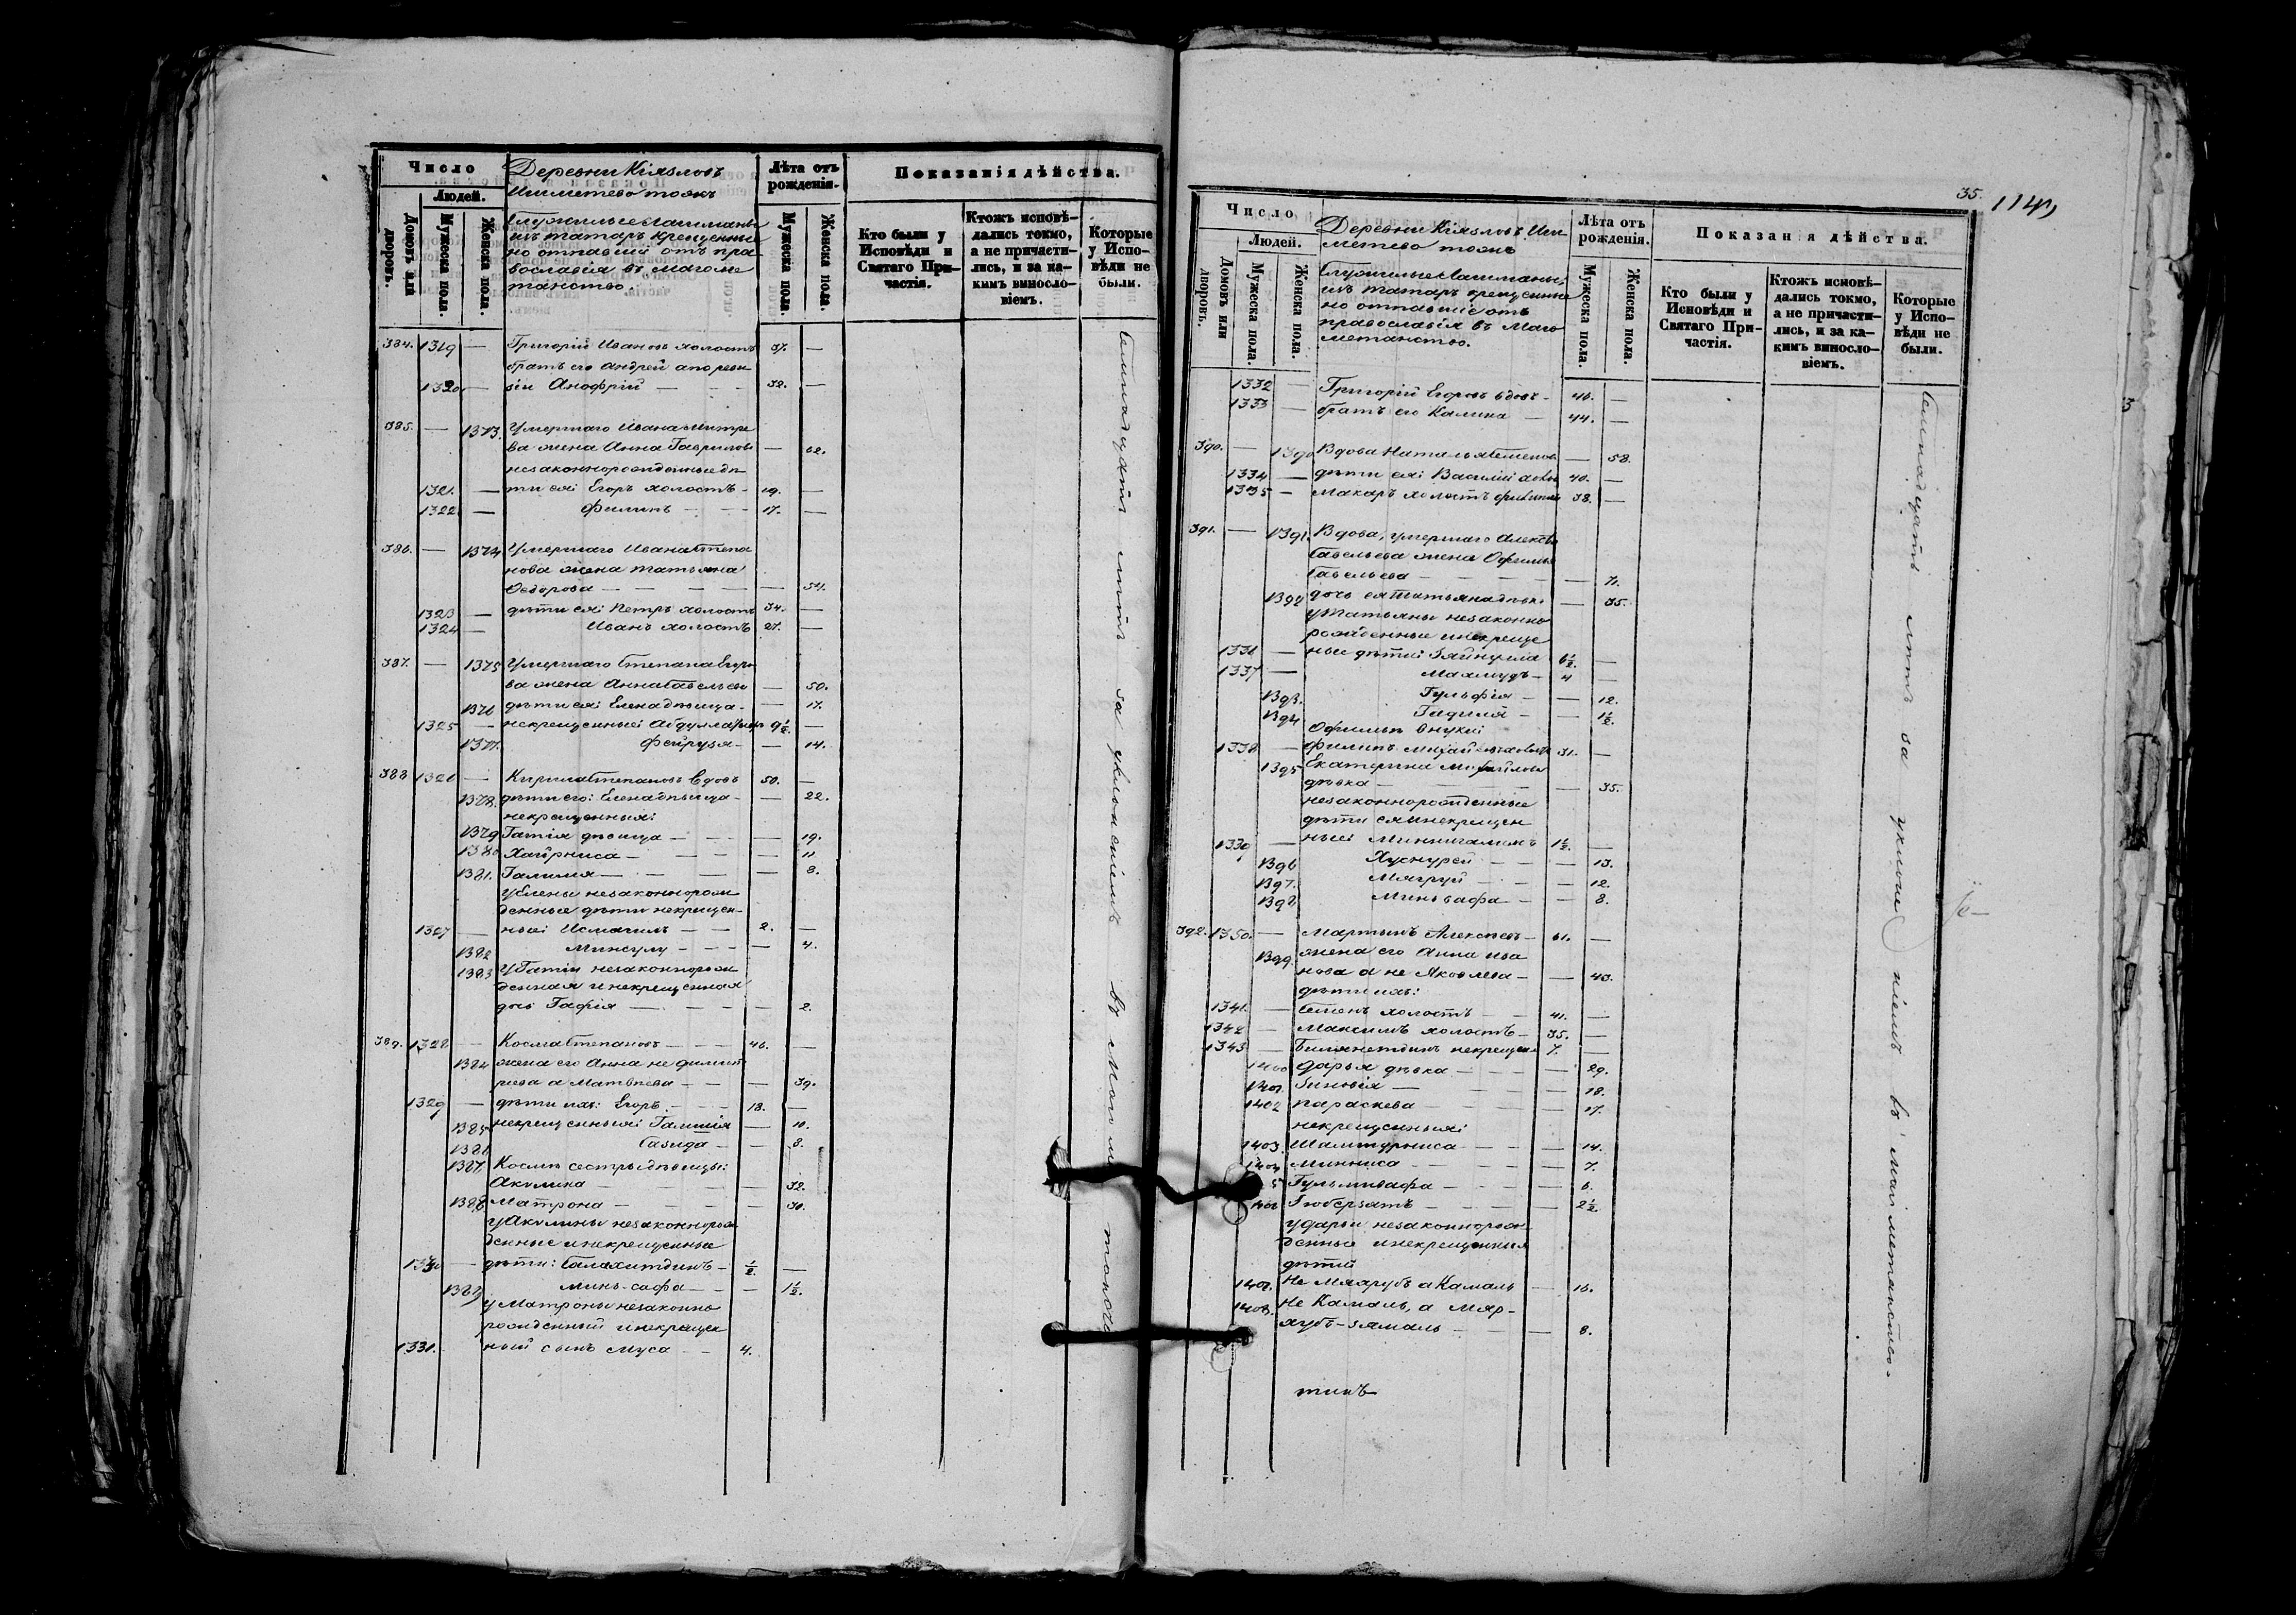 Число
Людей.
Домовъ или дворовъ.
Мужеска пола.
Женска пола.
Деревни Кіязловъ
Ишметево тожъ
Служилые Лашманы
изъ татаръ крещенные
но отпавшіе отъ пра-
вославія въ магоме
танство.
Лѣта отъ рожденія.
Мужеска пола.
Женска пола.
Показанія дѣйства.
Кто были у Исповѣди и Святаго При-частія.
Ктожъ исповѣ-дались токмо, а не причасти-лись, и за ка-кимъ винослο-віемъ.
Которые у Испо-вѣди не были.
384. 1319 — Григорій Ивановъ холостъ 37. —
братъ его Андрей а по реви
1320 — зіи Анофрій — — — 32. —
385. — 1373. Умершаго Ивана Митрі
ева жена Анна Гаврилова — 62.
незаконнорожденные дѣ
1321. — ти ея: Егоръ холостъ - 19. —
1322 — Филипъ — — 17. —
386. — 1374 Умершаго Ивана Степа
нова жена Татьяна
Ѳедорова — — — — — 54.
1323 — дѣти ея: Петръ холостъ 34. —
1324 — Иванъ холостъ 27. —
387. — 1375 Умершаго Степана Егоро
ва жена Анна Савельева — 50.
1376 дѣти ея: Елена дѣвица - — 17.
1325 — некрещенные: Абдулла 9½ —
1377. Фейрузя - — 14.
388 1326 — Кирила Степановъ вдовъ 50. —
1378. дѣти его: Елена дѣвица - — 22.
некрещенныя:
1379 Гатія дѣвица — — — 19.
1380 Хайрниса — — — — 11
1381. Галимя — — — — 8.
у Елены незаконнорож
денные дѣти некрещен-
1327 — ные: Исмагилъ — — 2. —
1382 Минсулу — — — 4.
1383 у Гатіи незаконнорож
денная и некрещенная
дочь Гафія — — — — 2.
389. 1328 — Косма Степановъ — — 46. —
1384 жена его Анна не Димит
ріева а Матвѣева — — — 39.
1329 — дѣти ихъ: Егоръ — — 18. —
1385 некрещенныя: Галимія — 10.
1386 Сагида — — 8.
1387. Космы сестры дѣвицы:
Акулина — — — — — 32.
1388 Матрона — — — — — 30.
у Акулины незаконнорож
денные и некрещенные
1330 — дѣти: Салахитдинъ — ½. —
1389 Минъ-сафа — — — 1½.
у Матроны незаконно
рожденный и некрещен
1331. ный сынъ Муса — — 4.
Семнадцать лѣтъ за уклоненіемъ въ Магоме танство
35. 1149
Число
Людей.
Домовъ или дворовъ.
Мужеска пола.
Женска пола.
Деревни Кіязловъ Иш-
метево тожъ
Служилые Лашманы,
изъ татаръ крещенные
но отпавшіе отъ
православія въ Маго
метанство.
Лѣта отъ рожденія.
Мужеска пола.
Женска пола.
Показанія дѣйства.
Кто были у Исповѣди и Святаго При-частія.
Ктожъ исповѣ-дались токмо, а не причасти-лись, и за ка-кимъ винослο-віемъ.
Которые у Испо-вѣди не были.
1332 — Григорій Егоровъ вдовъ - 46. —
1333 — братъ его Калина — 44. —
390. — 1390 Вдова Наталья Семенова — 58.
1334 — дѣти ея: Василій 40. —
1335 — Макаръ холостъ 38. —
391. — 1391. Вдова, умершаго Алексѣя
Савельева жена Офимья
Савельева — — — — — 71.
1392 дочь ея Татьяна дѣвка — 35.
у Татьяны незаконно
рожденные и некреще
1336 — ные дѣти: Зяйнулла 6½. —
1337 — Махмудъ - 4 —
1393. Гульфія — — 12.
1394 Гадиля — — 1½.
Офимьи внуки:
1338 — Филипъ Михайловъ холостъ 31. —
1395 Екатерина Михайлова
дѣвка — — — — — 35.
незаконнорожденные
дѣти ея и некрещен
1339 — ные: Миннигалимъ 1½. —
1396 Хуснурей — — — 13.
1397. Мягруй — — — 12.
1398 Миньвафа — — 8.
392. 1350. — Мартынъ Алексѣевъ — 61. —
1399. жена его Анна Ива
нова а не Яковлева — — 43.
дѣти ихъ:
1341. — Семенъ холостъ — 41. —
1342 — Максимъ холостъ — 35. —
1343 — Билянетдинъ некрещен 7. —
1400 Дарья дѣвка — — — — 29.
1401. Зиновія — — — — 18.
1402 Параскева — — — — 17.
некрещенныя:
1403. Шамшурниса — — — 14.
1404 Минниса — — — — 7.
5 Гульмивафа — — — — 6.
1406 Гюберзятъ — — — 2½.
у Дарьи незаконнорож
денные и некрещенныя
дѣти
1407. не Мяхрубъ а Камаль — 16.
1408. не Камаль, а Мяр-
хубъ-зямаль — — — 8.
тинъ
Семнадцать лѣтъ за уклоненіемъ въ магометанство.